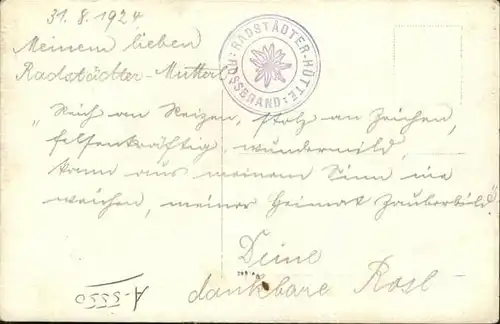 31.8.1924
Meinem lieben
Radstädter-Mutterl
RADSTÄDTER-HÜTTE:
ROSSBRAND:
„Reich an Reizen, stolz an Zeichen,
felsenkräftig, wundermild,
kann aus meinem Sinn nie
weichen, meiner Heimat Zauberbild"
Deine
dankbare Rosl
A-5550